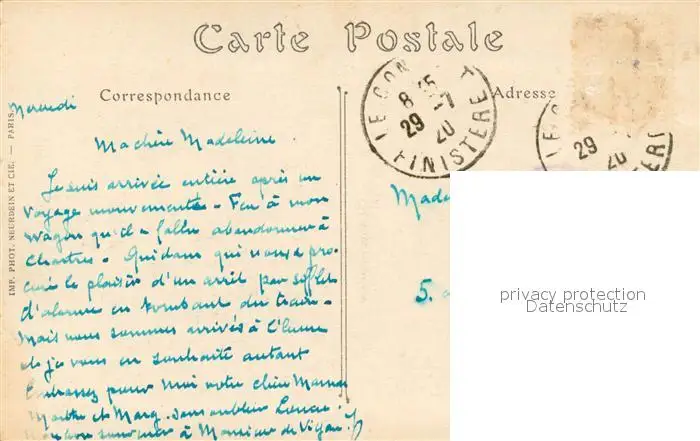 Carte Postale
Correspondance
Adresse
Mercredi
Ma chère Madeleine.
Je suis arrivée entière après un
voyage mouvementé - Feu à mon
wagon qu'il a fallu abandonner à
Chartres - Quidam qui nous a pro-
curé le plaisir d'un arrêt par sifflet
d'alarme en tombant du train -
Mais nous sommes arrivés à l'heure
et je vous en souhaite autant
Embrassez pour moi votre chère Maman
Marthe et Marg. sans oublier
à Monsieur de
IMP. PHOT. NEURDEIN ET CIE. — PARIS.
LE CON T
8 45
29 -7
20
FINISTERE
29
20
Made
5.
privacy protection
Datenschutz